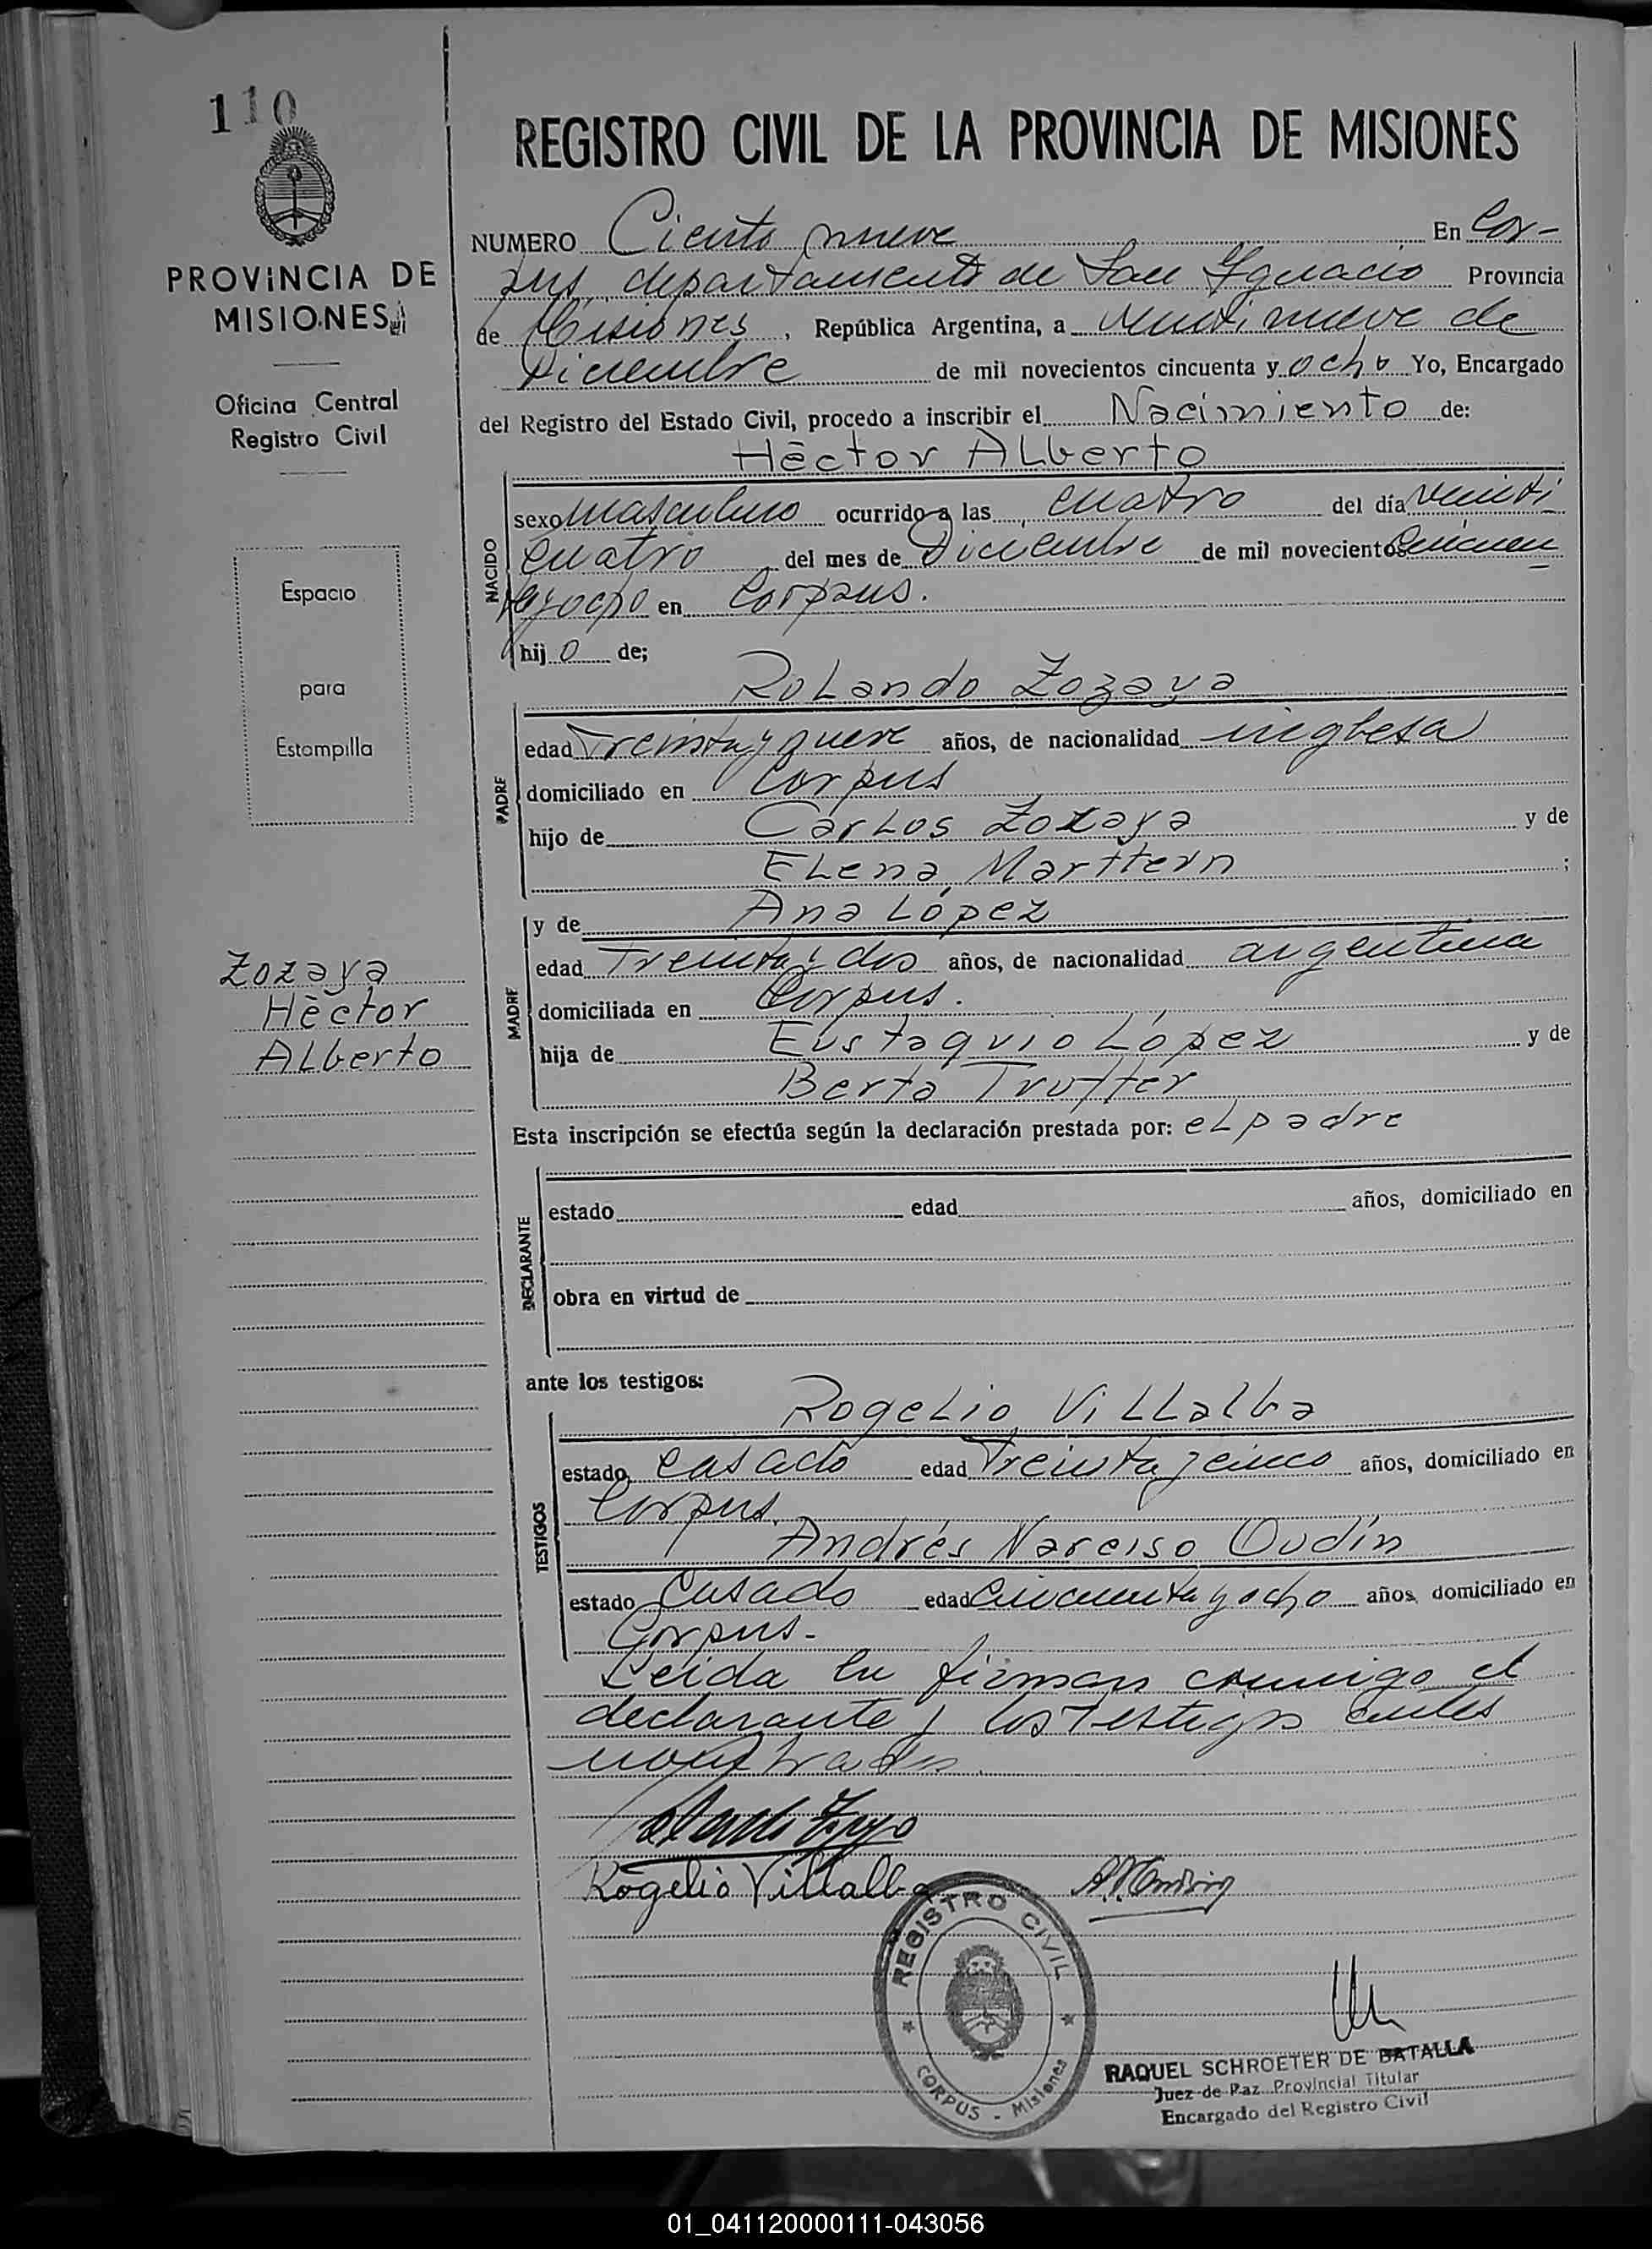 110
PROVINCIA DE
MISIONES
Oficina Central
Registro Civil
Espacio
para
Estampilla
Zozaya
Hèctor
ALberto
REGISTRO CIVIL DE LA PROVINCIA DE MISIONES
NUMERO Ciento nueve En Cor-
pus, departamento de San Ignacio Provincia
de Misiones, República Argentina, a veintinueve de
Diciembre de mil novecientos cincuenta y ocho Yo, Encargado
del Registro del Estado Civil, procedo a inscribir el Nacimiento de:
Hèctor ALberto
NACIDO
sexo masculino ocurrido a las cuatro del día veinti
cuatro del mes de Diciembre de mil novecientos cincuen
ta y ocho en Corpus.
hijo de;
RoLando Zozaya
PADRE
edad Treinta y nueve años, de nacionalidad inglesa
domiciliado en Corpus
hijo de CarLos Zozaya y de
ELena Marttern ;
y de Ana López
MADRE
edad Treinta y dos años, de nacionalidad argentina
domiciliada en Corpus.
hija de Eustaquio López y de
Berta Trutter
Esta inscripción se efectúa según la declaración prestada por: eL padre
DECLARANTE
estado edad años, domiciliado en
obra en virtud de
ante los testigos:
RogeLio ViLLalba
TESTIGOS
estado casado edad Treinta y cinco años, domiciliado en
Corpus.
Andrés Narciso Oudín
estado Casado edad Cincuenta y ocho años, domiciliado en
Corpus-
Leida la firman conmigo el
declarante y los Testigos antes
nombrados.
Rogelio Villalba
REGISTRO CIVIL
CORPUS - Misiones
RAQUEL SCHROETER DE BATALLA
Juez de Paz Provincial Titular
Encargado del Registro Civil
01_041120000111-043056